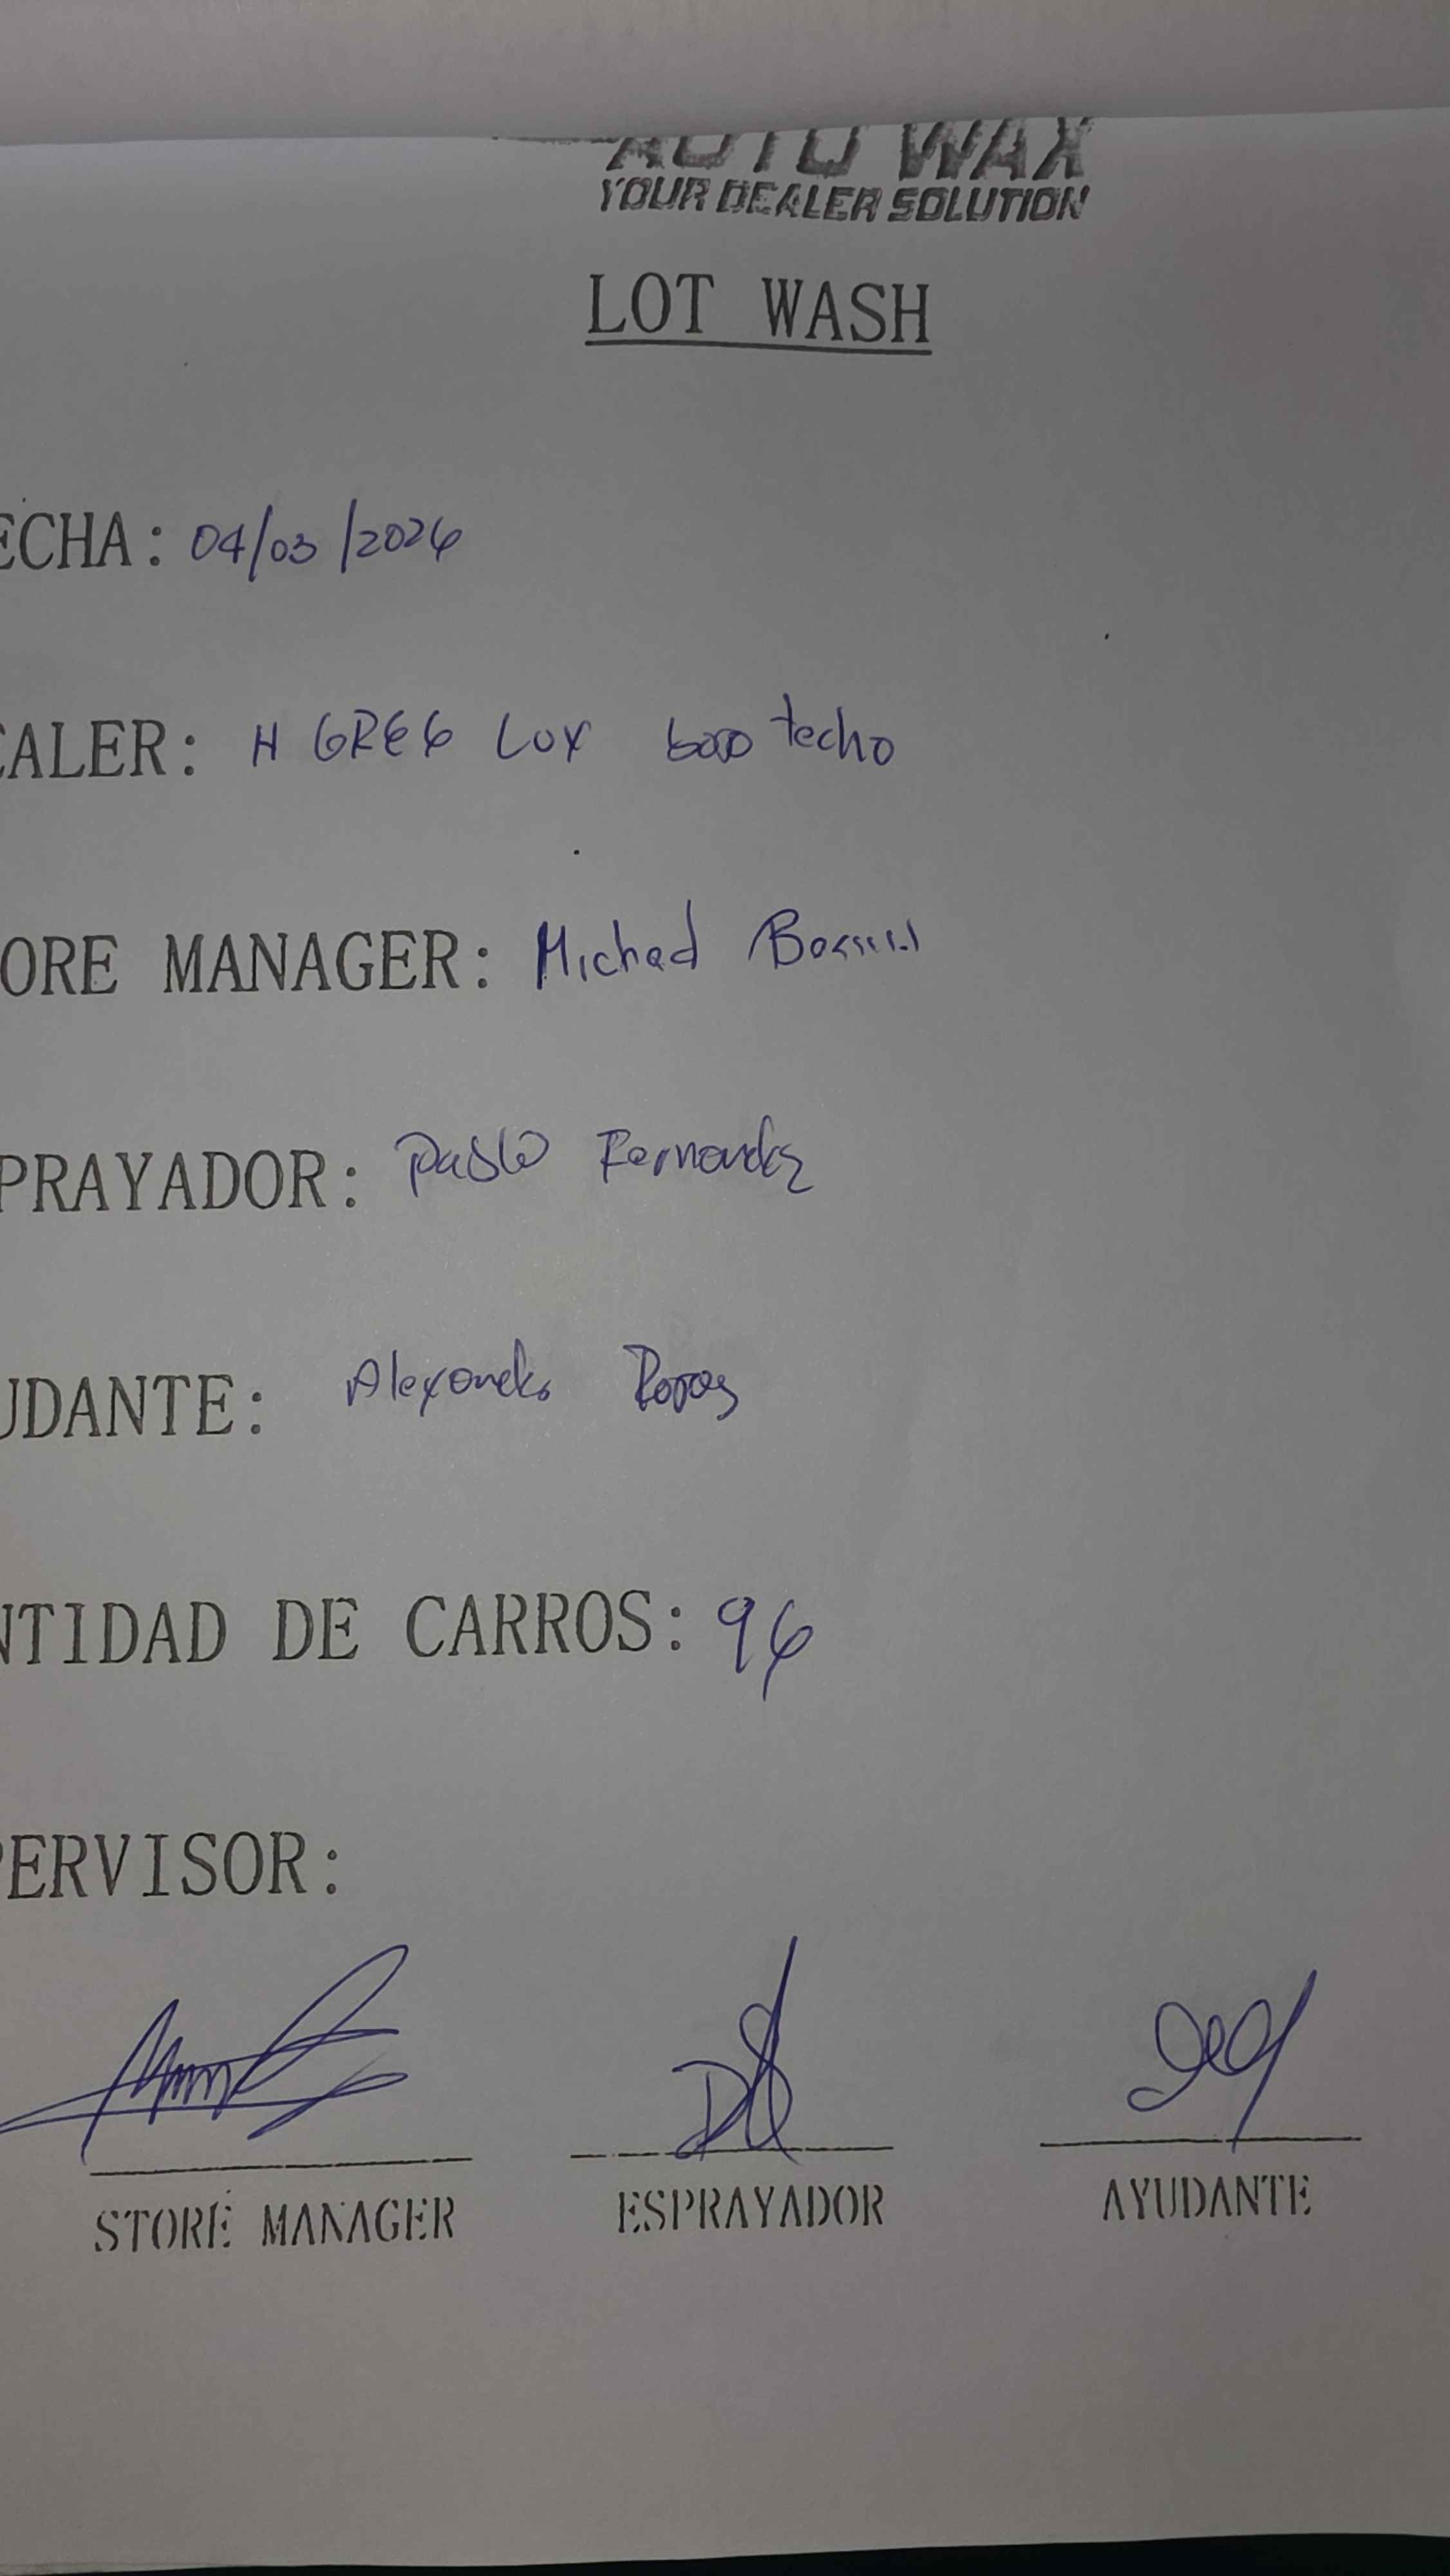 AUTO WAX
YOUR DEALER SOLUTION
LOT WASH
ECHA: 04/03/2026
EALER: H GREG LUX bajo techo
ORE MANAGER: Michael
PRAYADOR: Pablo Fernandez
UDANTE: Alexander Rojas
NTIDAD DE CARROS: 96
PERVISOR:
STORE MANAGER ESPRAYADOR AYUDANTE